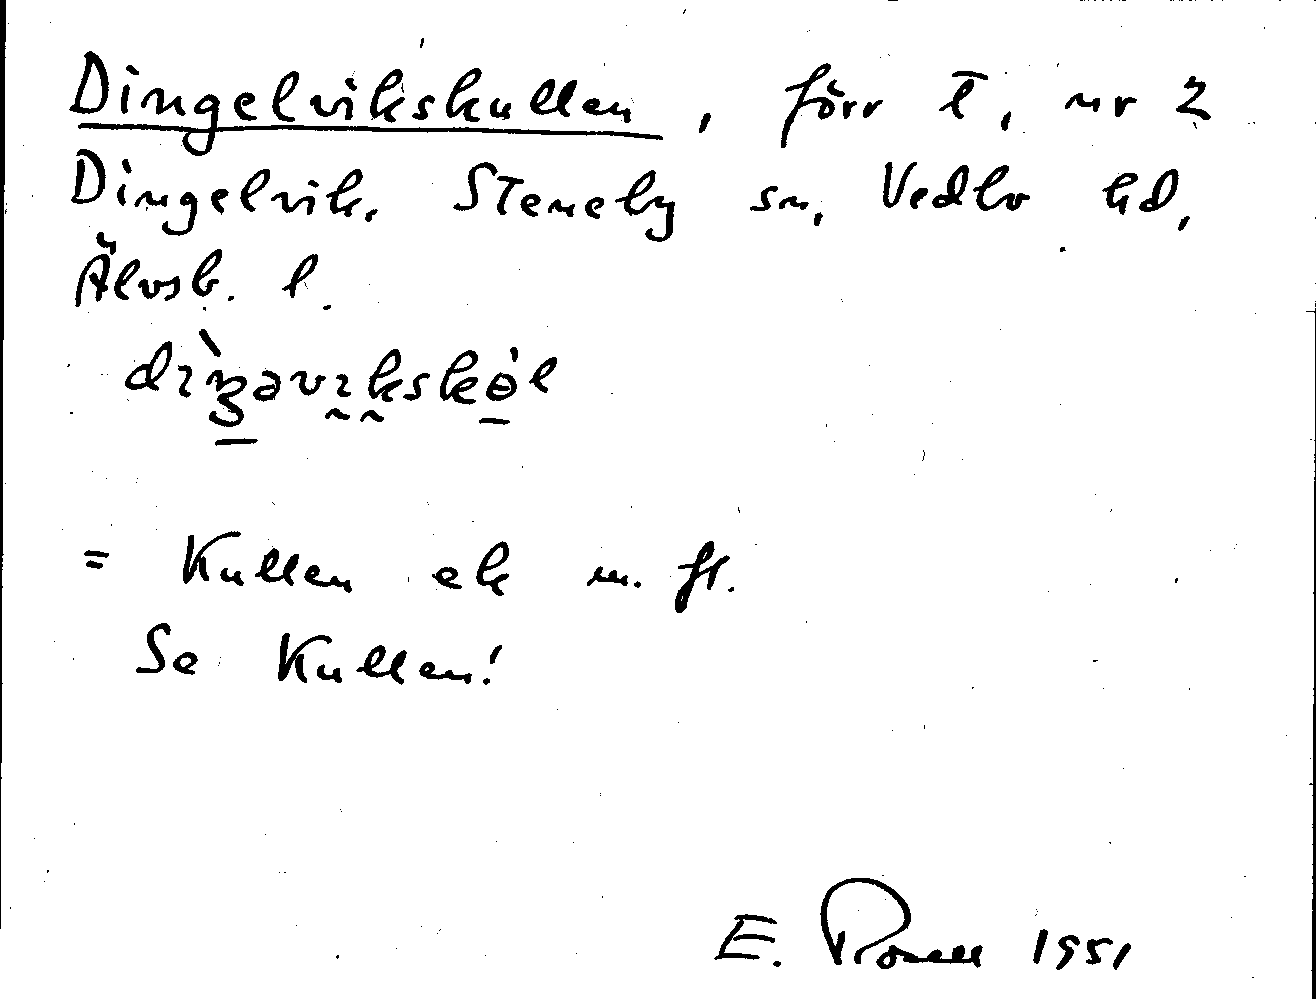 Dingelvikskullen, förr t, nr 2
Dingelvik. Steneby sn, Vedbo hd,
Älvsb. l.
= Kullen ek m. fl.
Se Kullen!
E. Rosell 1951